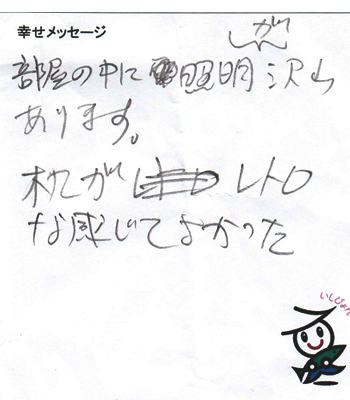 幸せメッセージ
部屋の中に照明が沢山
あります。
枕がレトロ
な感じでよかった